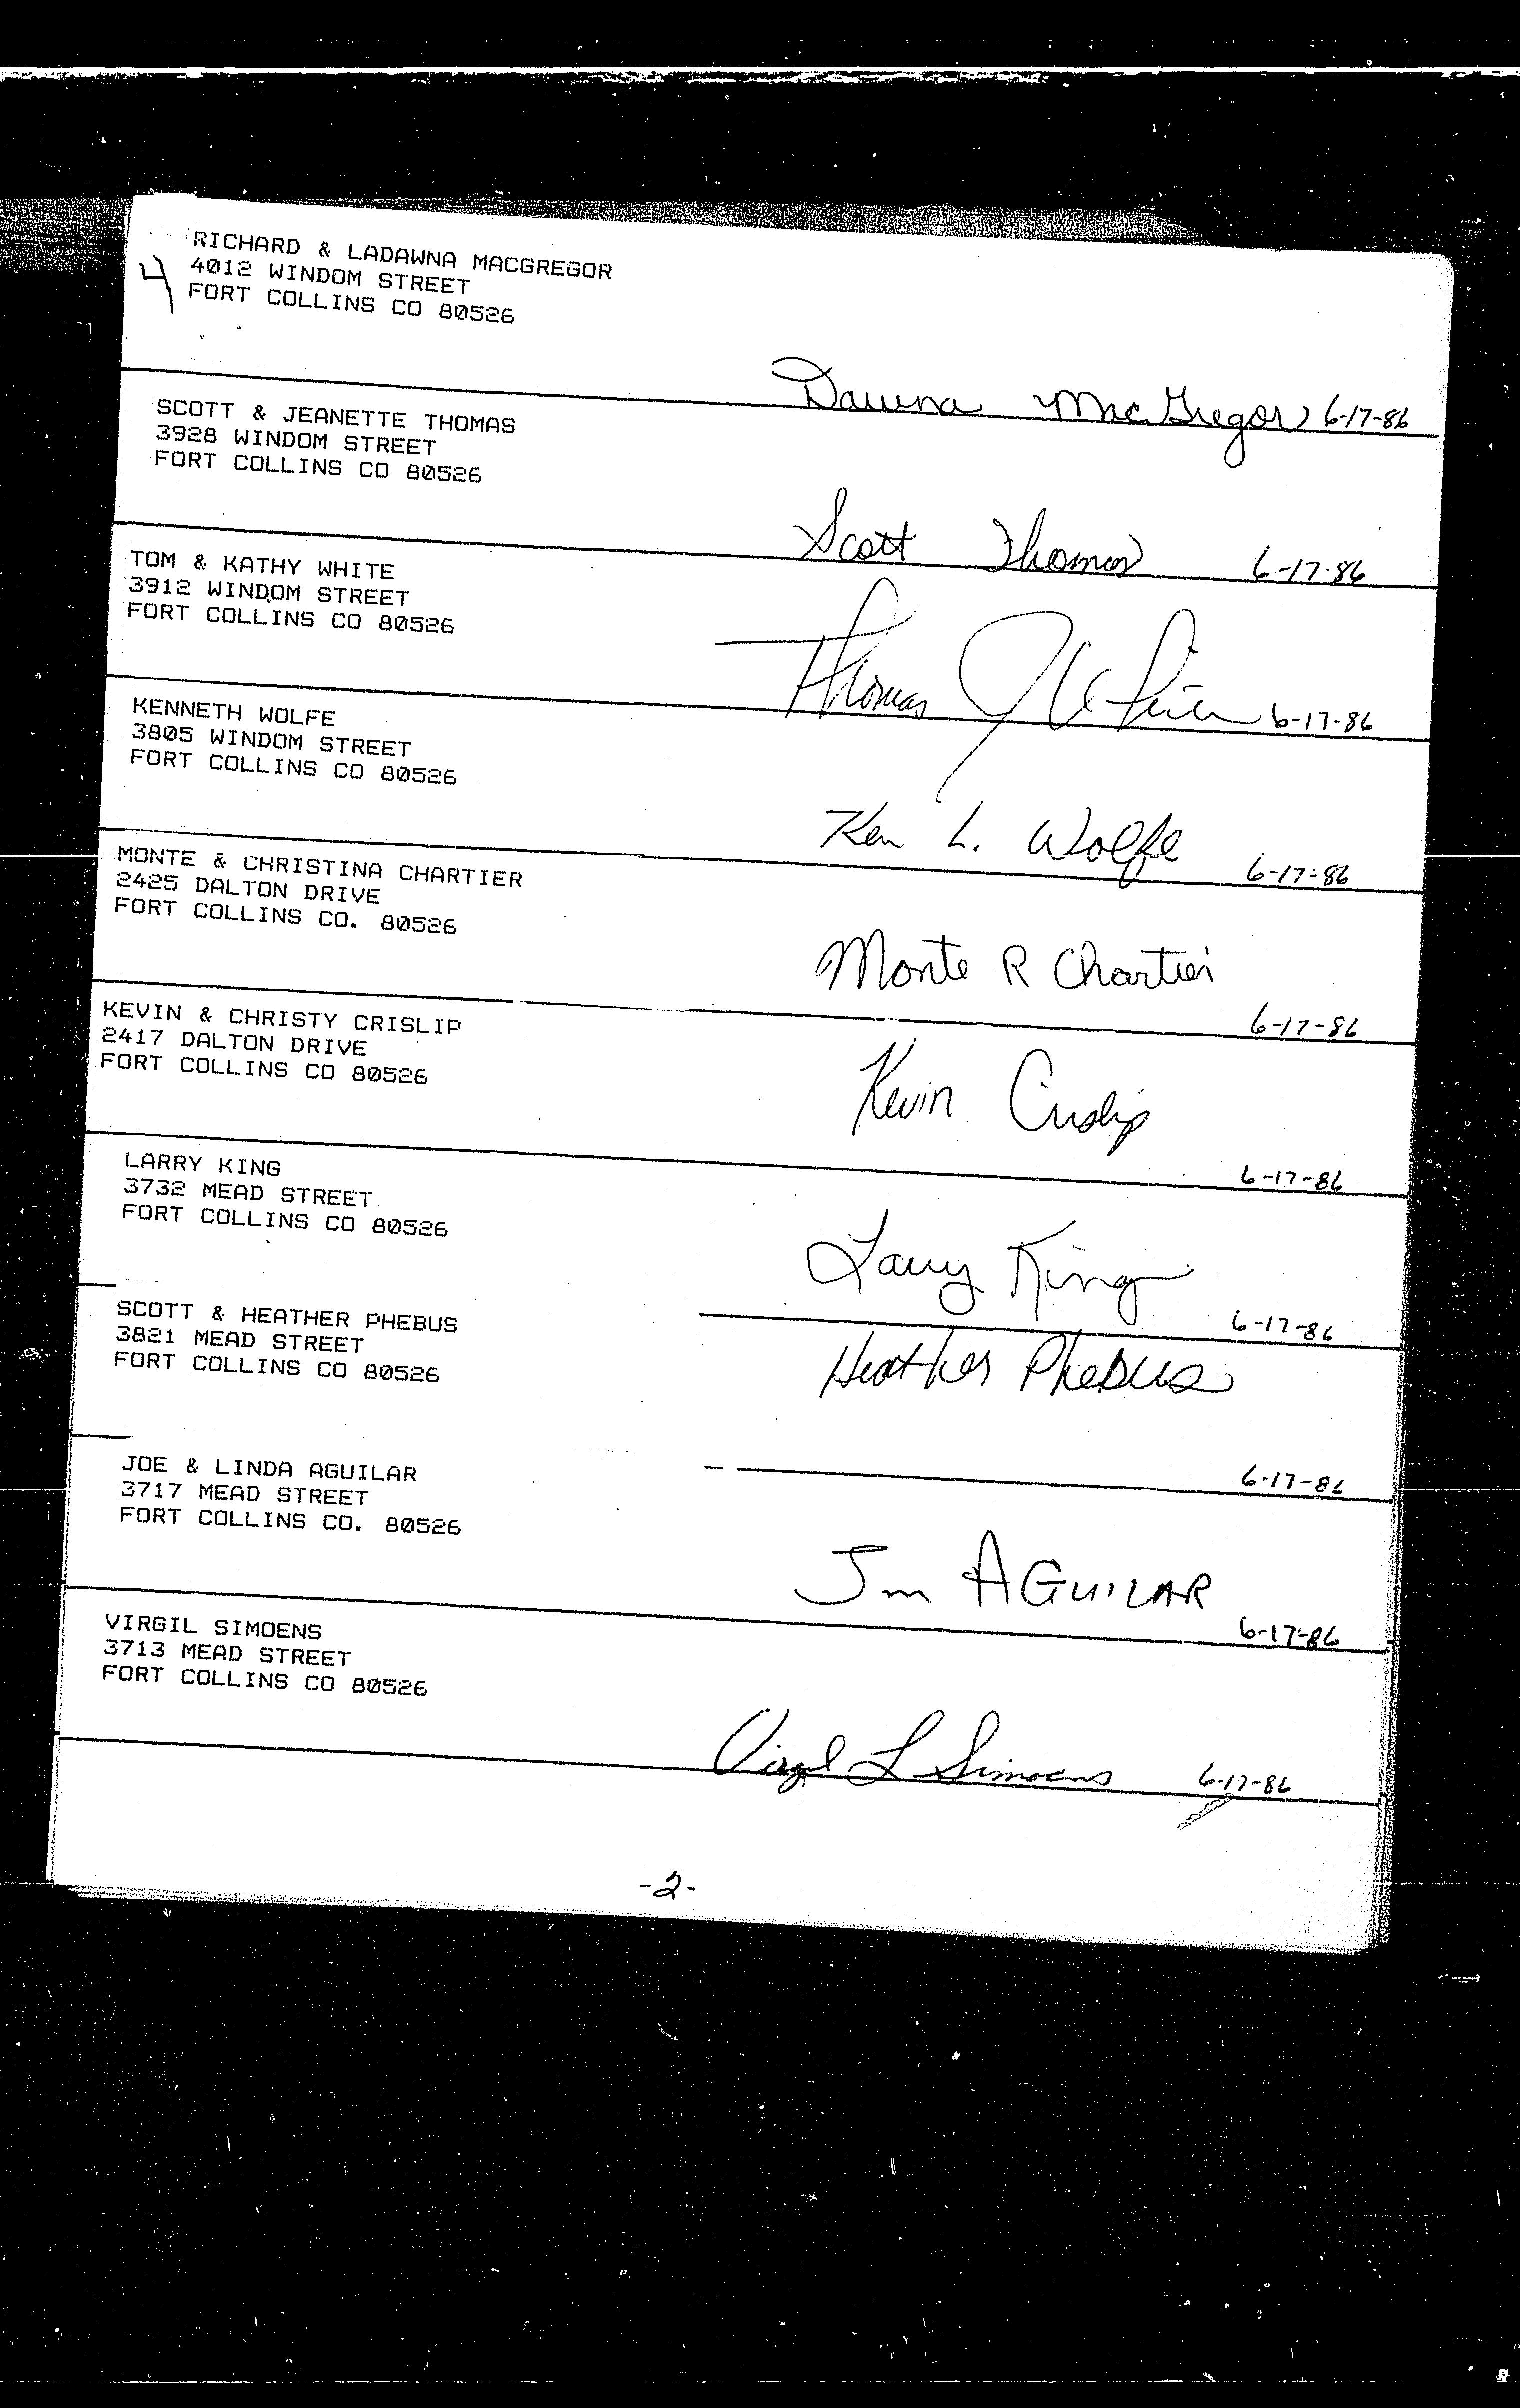 RICHARD & LADAWNA MACGREGOR
4 4012 WINDOM STREET
FORT COLLINS CO 80526
Dawna MacGregor 6-17-86
SCOTT & JEANETTE THOMAS
3928 WINDOM STREET
FORT COLLINS CO 80526
Scott Thomas 6-17-86
TOM & KATHY WHITE
3912 WINDOM STREET
FORT COLLINS CO 80526
Thomas J White 6-17-86
KENNETH WOLFE
3805 WINDOM STREET
FORT COLLINS CO 80526
Ken L. Wolfe 6-17-86
MONTE & CHRISTINA CHARTIER
2425 DALTON DRIVE
FORT COLLINS CO. 80526
Monte R Chartier
6-17-86
KEVIN & CHRISTY CRISLIP
2417 DALTON DRIVE
FORT COLLINS CO 80526
Kevin Crislip
6-17-86
LARRY KING
3732 MEAD STREET
FORT COLLINS CO 80526
Larry King
6-17-86
SCOTT & HEATHER PHEBUS
3821 MEAD STREET
FORT COLLINS CO 80526
Heather Phebus
6-17-86
JOE & LINDA AGUILAR
3717 MEAD STREET
FORT COLLINS CO. 80526
AGUILAR
6-17-86
VIRGIL SIMOENS
3713 MEAD STREET
FORT COLLINS CO 80526
Virgil L Simoens 6-17-86
-2-